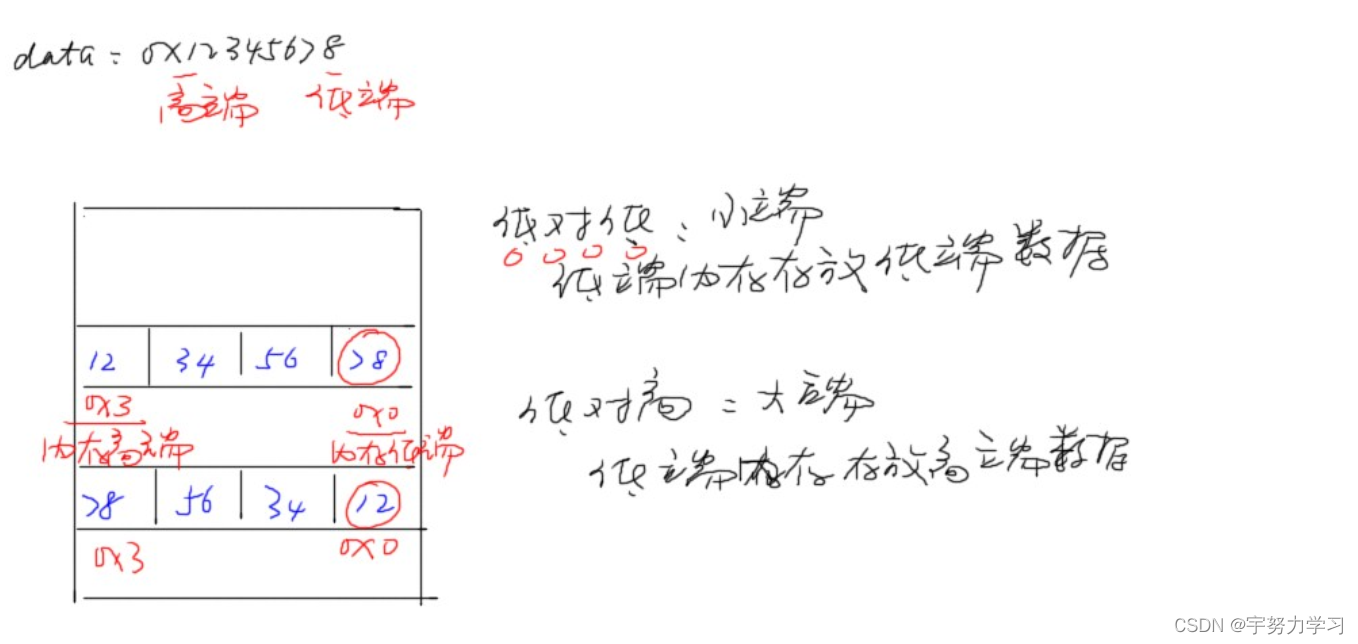 data = 0x12345678
高端 低端
低对低:小端
低端内存存放低端数据
12 34 56 78
0x3 0x0
内存高端 内存低端
低对高:大端
低端内存存放高端数据
78 56 34 12
0x3 0x0
CSDN @宇努力学习